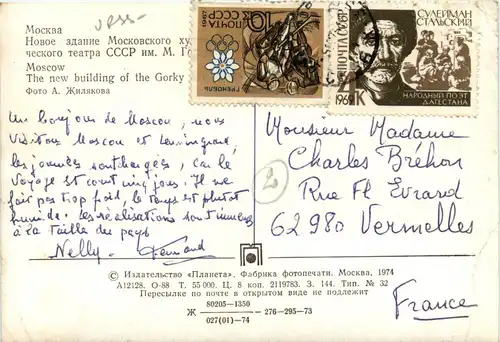 URSS
Москва
Новое здание Московского ху
ческого театра СССР им. М. Го
Moscow
The new building of the Gorky
Фото А. Жилякова
ПОЧТА СССР 10К 1967
ГРЕНОБЛЬ
ПОЧТА СССР
СУЛЕЙМАН
СТАЛЬСКИЙ
НАРОДНЫЙ ПОЭТ
ДАГЕСТАНА
1969
Un bonjour de Moscou, nous
visitons Moscou et Leningrad,
les journées sont chargées, car le
voyage est court cinq jours. Il ne
fait pas trop froid, le temps est plutôt
humide. Les réalisations sont immenses
à la taille du pays
Nelly - Fernand
2
Monsieur Madame
Charles Bréhon
Rue Fl Evrard
62980 Vermelles
France
© Издательство «Планета». Фабрика фотопечати. Москва, 1974
А12128. О-88 Т. 55 000. Ц. 8 коп. 2119783. З. 144. Тип. № 32
Пересылке по почте в открытом виде не подлежит
Ж 80205—1350
027(01)—74 —276—295—73